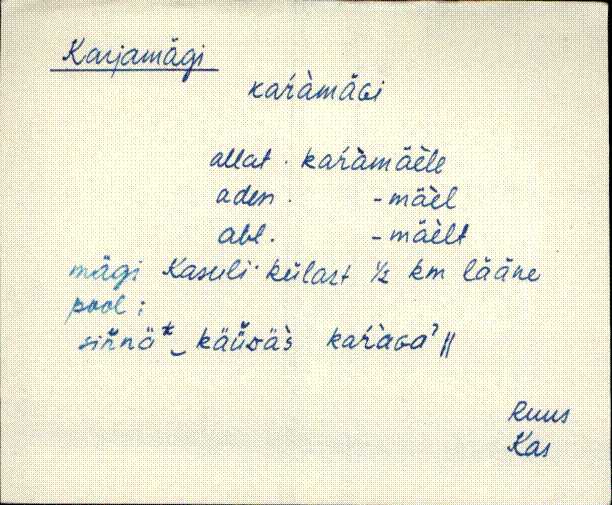 Karjamägi
kaŕàmäGi
allat. kaŕàmäèle
aden. -mäèl
abl. -mäèlt
mägi Kasuli külast ½ km lääne
pool:
siňnä* käüväs̀ kaŕàGa' ||
Ruus
Kas